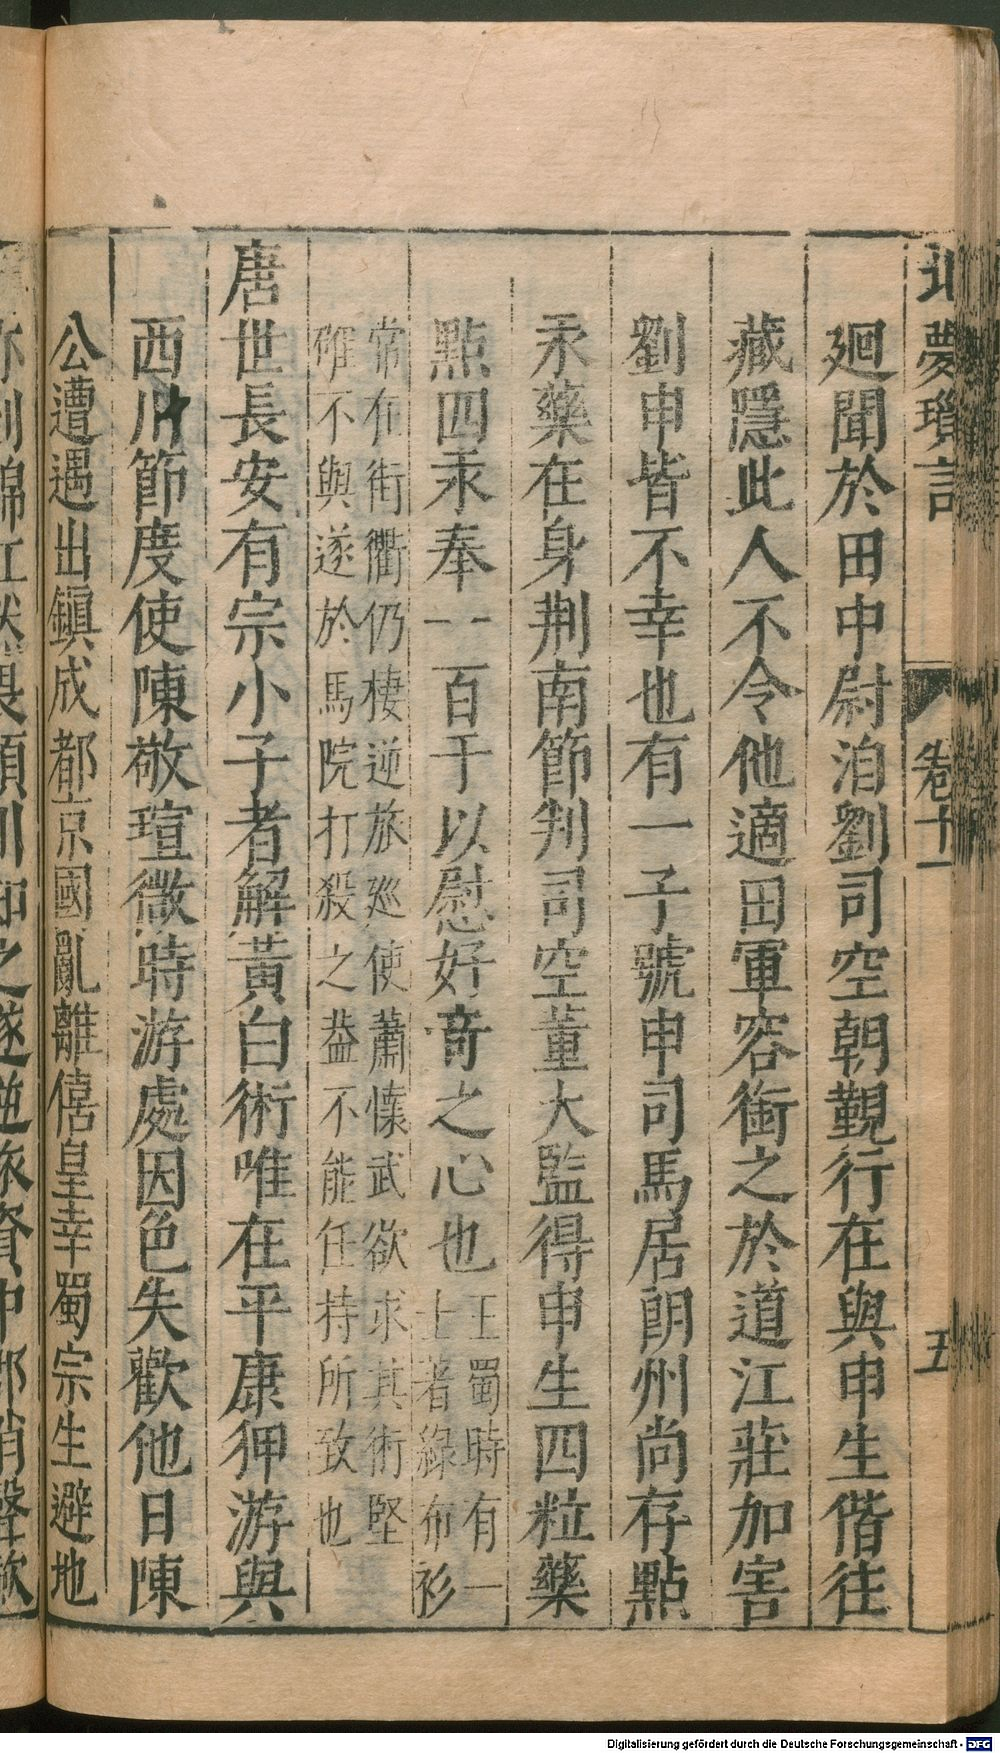 北夢瑣言 卷十一 五
廻聞於田中尉洎劉司空朝觐行在與申生偕往
藏隱此人不令他適田軍容銜之於道江莊加害
劉申皆不幸也有一子號申司馬居朗州尚存點
汞藥在身荆南節判司空董大監得申生四粒藥
點四汞奉一百于以慰好竒之心也王蜀時有一
士著綠布衫
常在街衢仍棲逆旅巡使蕭懷武欲求其術堅
確不與遂於馬院打殺之葢不能任持所致也
唐世長安有宗小子者解黃白術唯在平康狎游與
西川節度使陳敬瑄微時游處因色失歡他日陳
公遭遇出鎮成都京國亂離僖皇幸蜀宗生避地
Digitalisierung gefördert durch die Deutsche Forschungsgemeinschaft - DFG